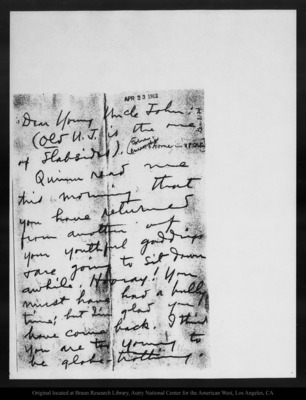 APR 23 1912
Dear Young Uncle John:
(Old U. J. is the one
of Slabsides).
Quinn read me
this morning that
you have returned
from another of
your youthful gaddings
& are going to sit down
awhile. Hooray! You
must have had a bully
time; but I'm glad you
have come back. I think
you are too young to
be globe-trotting.
Original located at Braun Research Library, Autry National Center for the American West, Los Angeles, CA